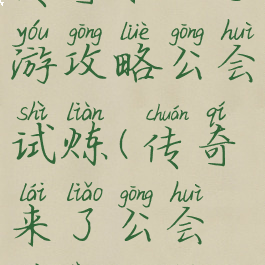 yóu gōng lüè gōng huì
游攻略公会
shì liàn chuán qí
试炼(传奇
lái liǎo gōng huì
来了公会